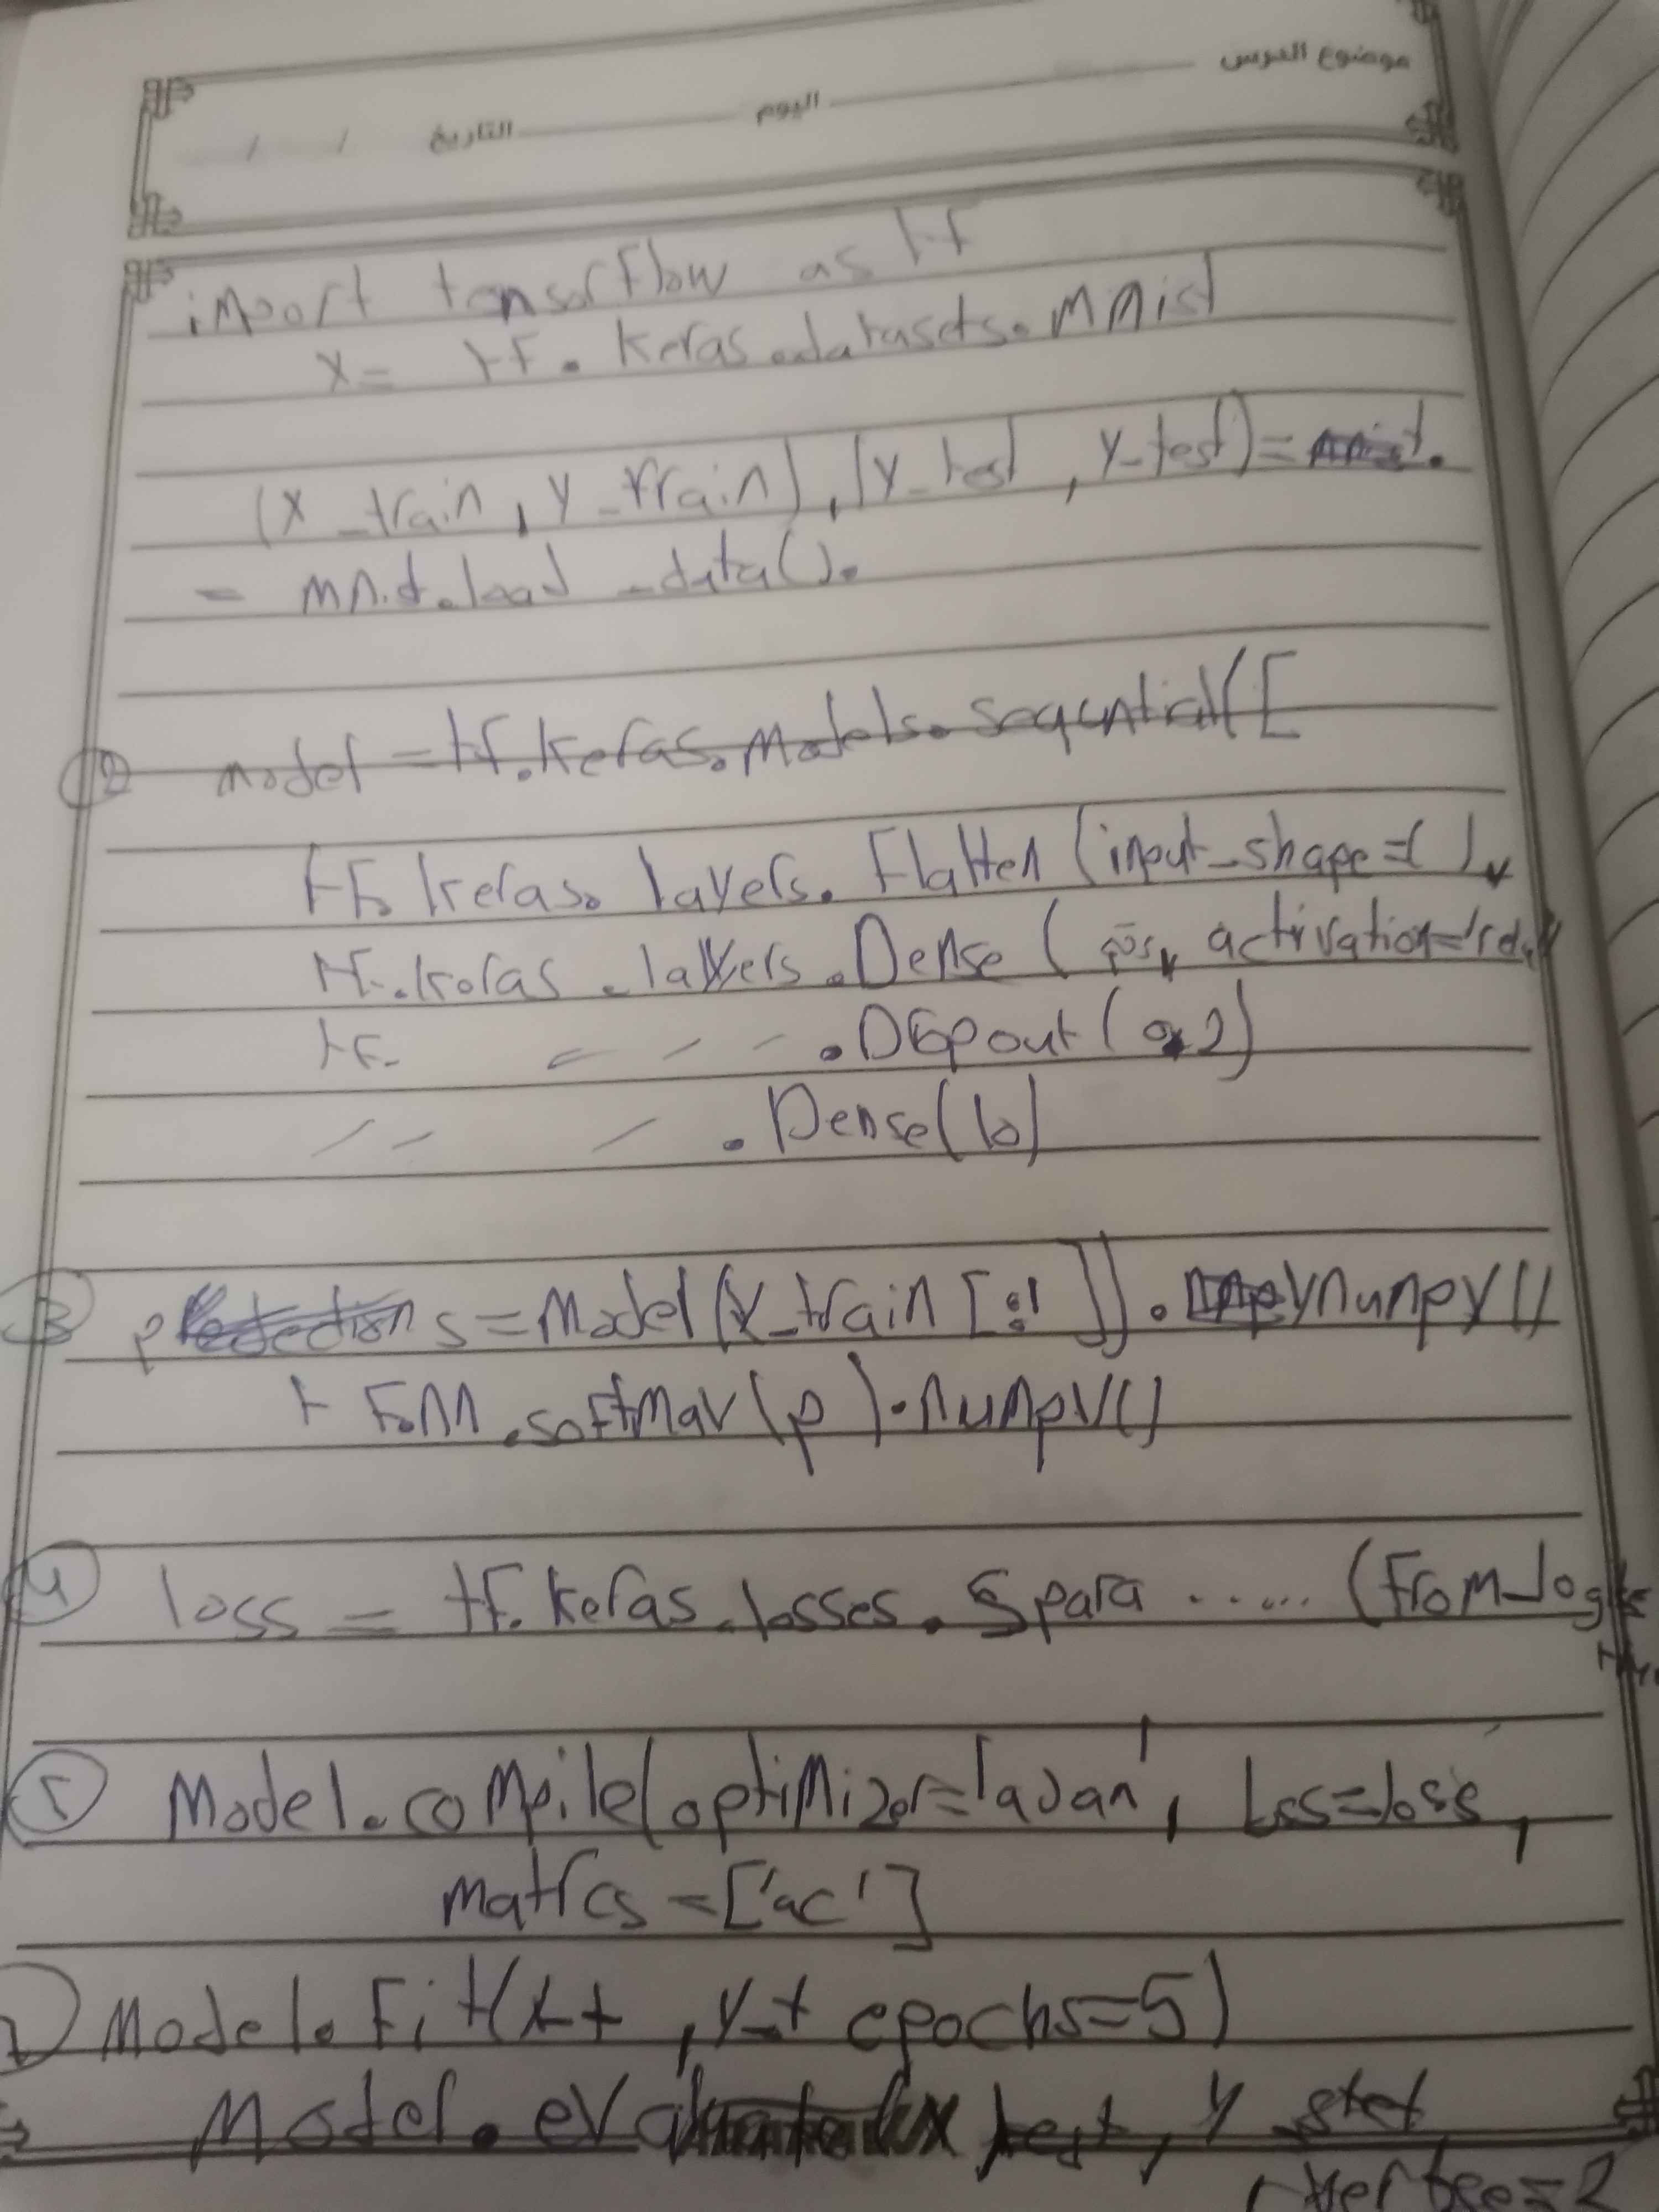 موضوع الدرس اليوم التاريخ / /
import tensorflow as tf
x = tf. keras.datasets.mnist
(x_train, y_train), (y_test, y_test) =
= mnist.load_data().
② model = tf.keras.models.sequntial([
tf.keras. layers. Flatten (input_shape=( ),
tf.keras.layers.Dense ( activation='relu
tf. .Dropout (0.2)
.Dense(10)
③ s = Model (x_train [:1 ]).numpy()
tf.nn.softmax (p).numpy()
④ loss = tf.keras.losses. Spara ...... (from_logits
⑤ Model.compile(optimizer='adam', loss=loss,
matrcs = ['ac']
Model.Fit(x_t, y_t epochs=5)
Model. test, y
=2